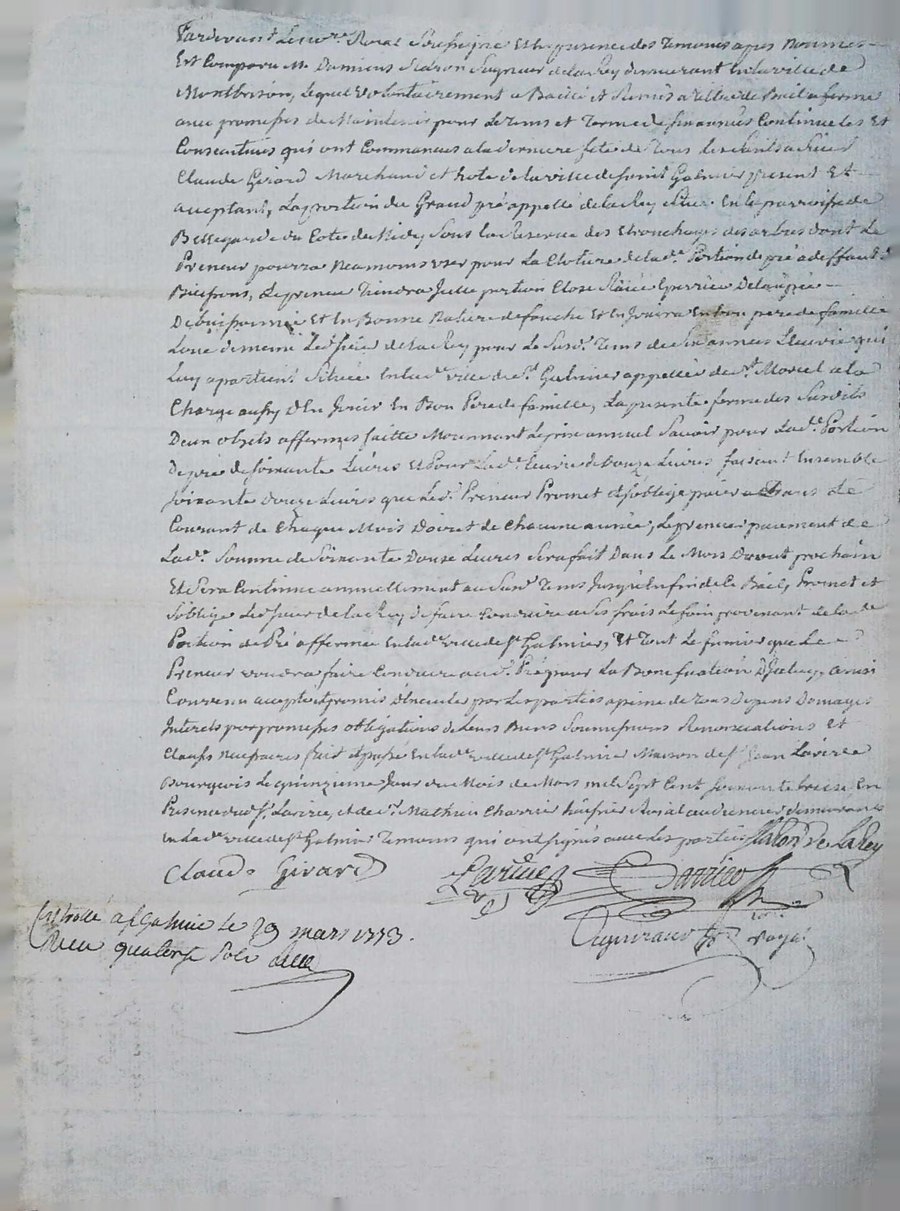 Pardevant Le no.re Royal Soussigné Et en presence des Temoins apres Nommés
Est Comparu Mr. Damiens Seigneur de la Rey demeurant En la ville de
Montbrison, Lequel volontairement a Baillé et Remis a Titre de Bail a ferme
avec promesses de Maintenir pour Le tems et Terme de six années Continuelles Et
Consecutives qui ont Commancés a la derniere fete de Tous les saints a Sieur
Claude Girard Marchand et hote de la ville de saint Galmier present Et
acceptant, La portion du Grand pré appellé de la Rey Situé En la parroisse de
Bellegarde du Coté de Midy Sous la Reserve des Etronchages des arbres dont Le
Preneur pourra Neamoins user pour La Cloture de la de. Portion de pré a deffaut de
Buissons, Le preneur Tiendra Jcelle portion Close
Et En Bonne Nature de fauche Et En Jouira En bon pere de famille
Loue de meme Led. Sieur de la Rey pour Le Susd. Tems de six années L'ecurie qui
Luy apartient Située En lad. ville de St. Galmier appellée de St. Morcel a la
Charge aussy d'En Jouir En Bon Pere de famille, La presente ferme des Susdits
Deux objets affermés faitte Moyennant Le prix annuel Savoir pour La de. Portion
De pré de soixante Livres Et Pour La de. Ecurie de douze Livres faisant Ensemble
Soixante douze Livres que Led. Preneur Promet et s'oblige paier
Courant de Chaque Mois D'aout de Chacune année, Le premier paiement de
La de. Somme de Soixante Douze Livres Sera fait Dans Le Mois D'aout prochain
Et Sera Continué annuellement au Susd. Tems Jusqu'En fin de Ce Bail, Promet et
S'oblige Led. Sieur de la Rey de faire Conduire a Ses frais Le foin provenant de la de.
Portion de Pré affermée En la de. ville de St. Galmier, Et Tout Le fumier que Le
Preneur voudra faire Conduire aud. Pré pour La Bonnification D'Jceluy, ainsi
Convenu accepté et promis D'Executer par Les parties a peine de Tous Depens Domages
Interets par promesses obligations de Leurs Biens Soumissions Renonciations Et
Clauses Necessaires fait et passé En la de. ville de St. Galmier Maison de sr. Jean
Bourgeois Le quinzieme Jour du Mois de Mars mil Sept Cent soixante treize En
Presence dud. Sr. et de Sr. Mathieu huissier Royal audiencier demeurants
En La de. ville de St. Galmier Temoins qui ont signés avec Les parties de La Rey
Claude Girard
not. Royal
Controllé a St Galmier le 29 mars 1773.
Recu quatorze sols